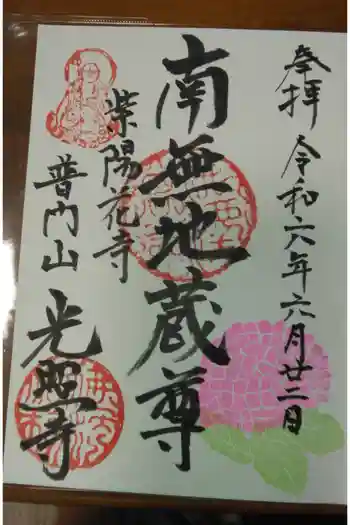 奉拝 令和六年六月廿二日
南無地蔵尊
紫陽花寺
普門山
光照寺